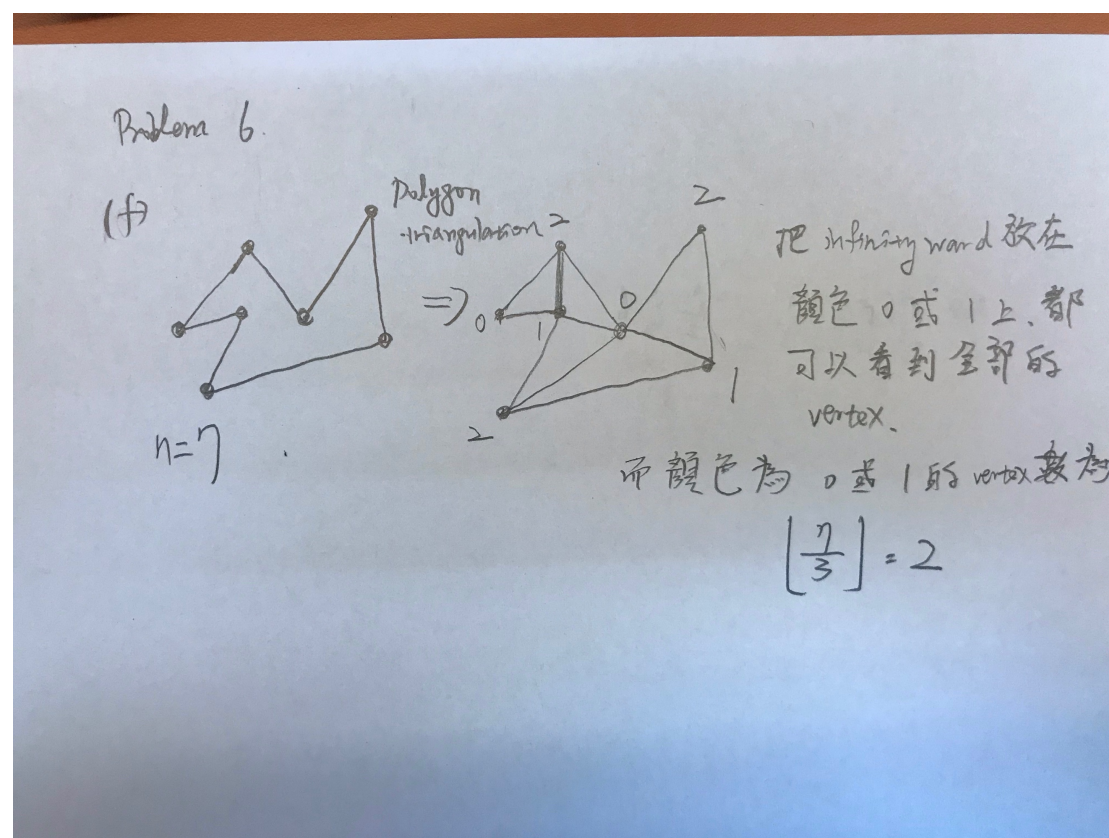 Problem 6.
(f)
Polygon
triangulation
⇒
n=7
2
0
1
0
2
1
2
把 infinity ward 放在
顏色 0 或 1 上、都
可以看到全部的
vertex、
而顏色為 0 或 1 的 vertex 數為
⌊7/3⌋ = 2